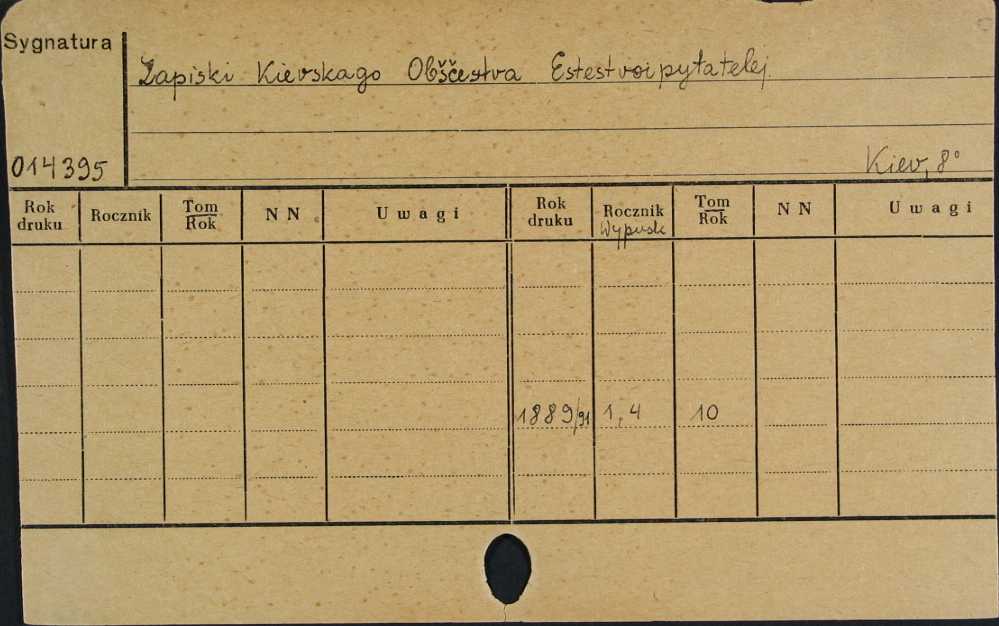 Sygnatura
Zapiski Kievskago Obščestva Estestvoipytatelej
014395
Kiev, 8°
Rok druku Rocznik Tom Rok N N Uwagi Rok druku Rocznik Wypusk Tom Rok N N Uwagi
1889/91 1,4 10